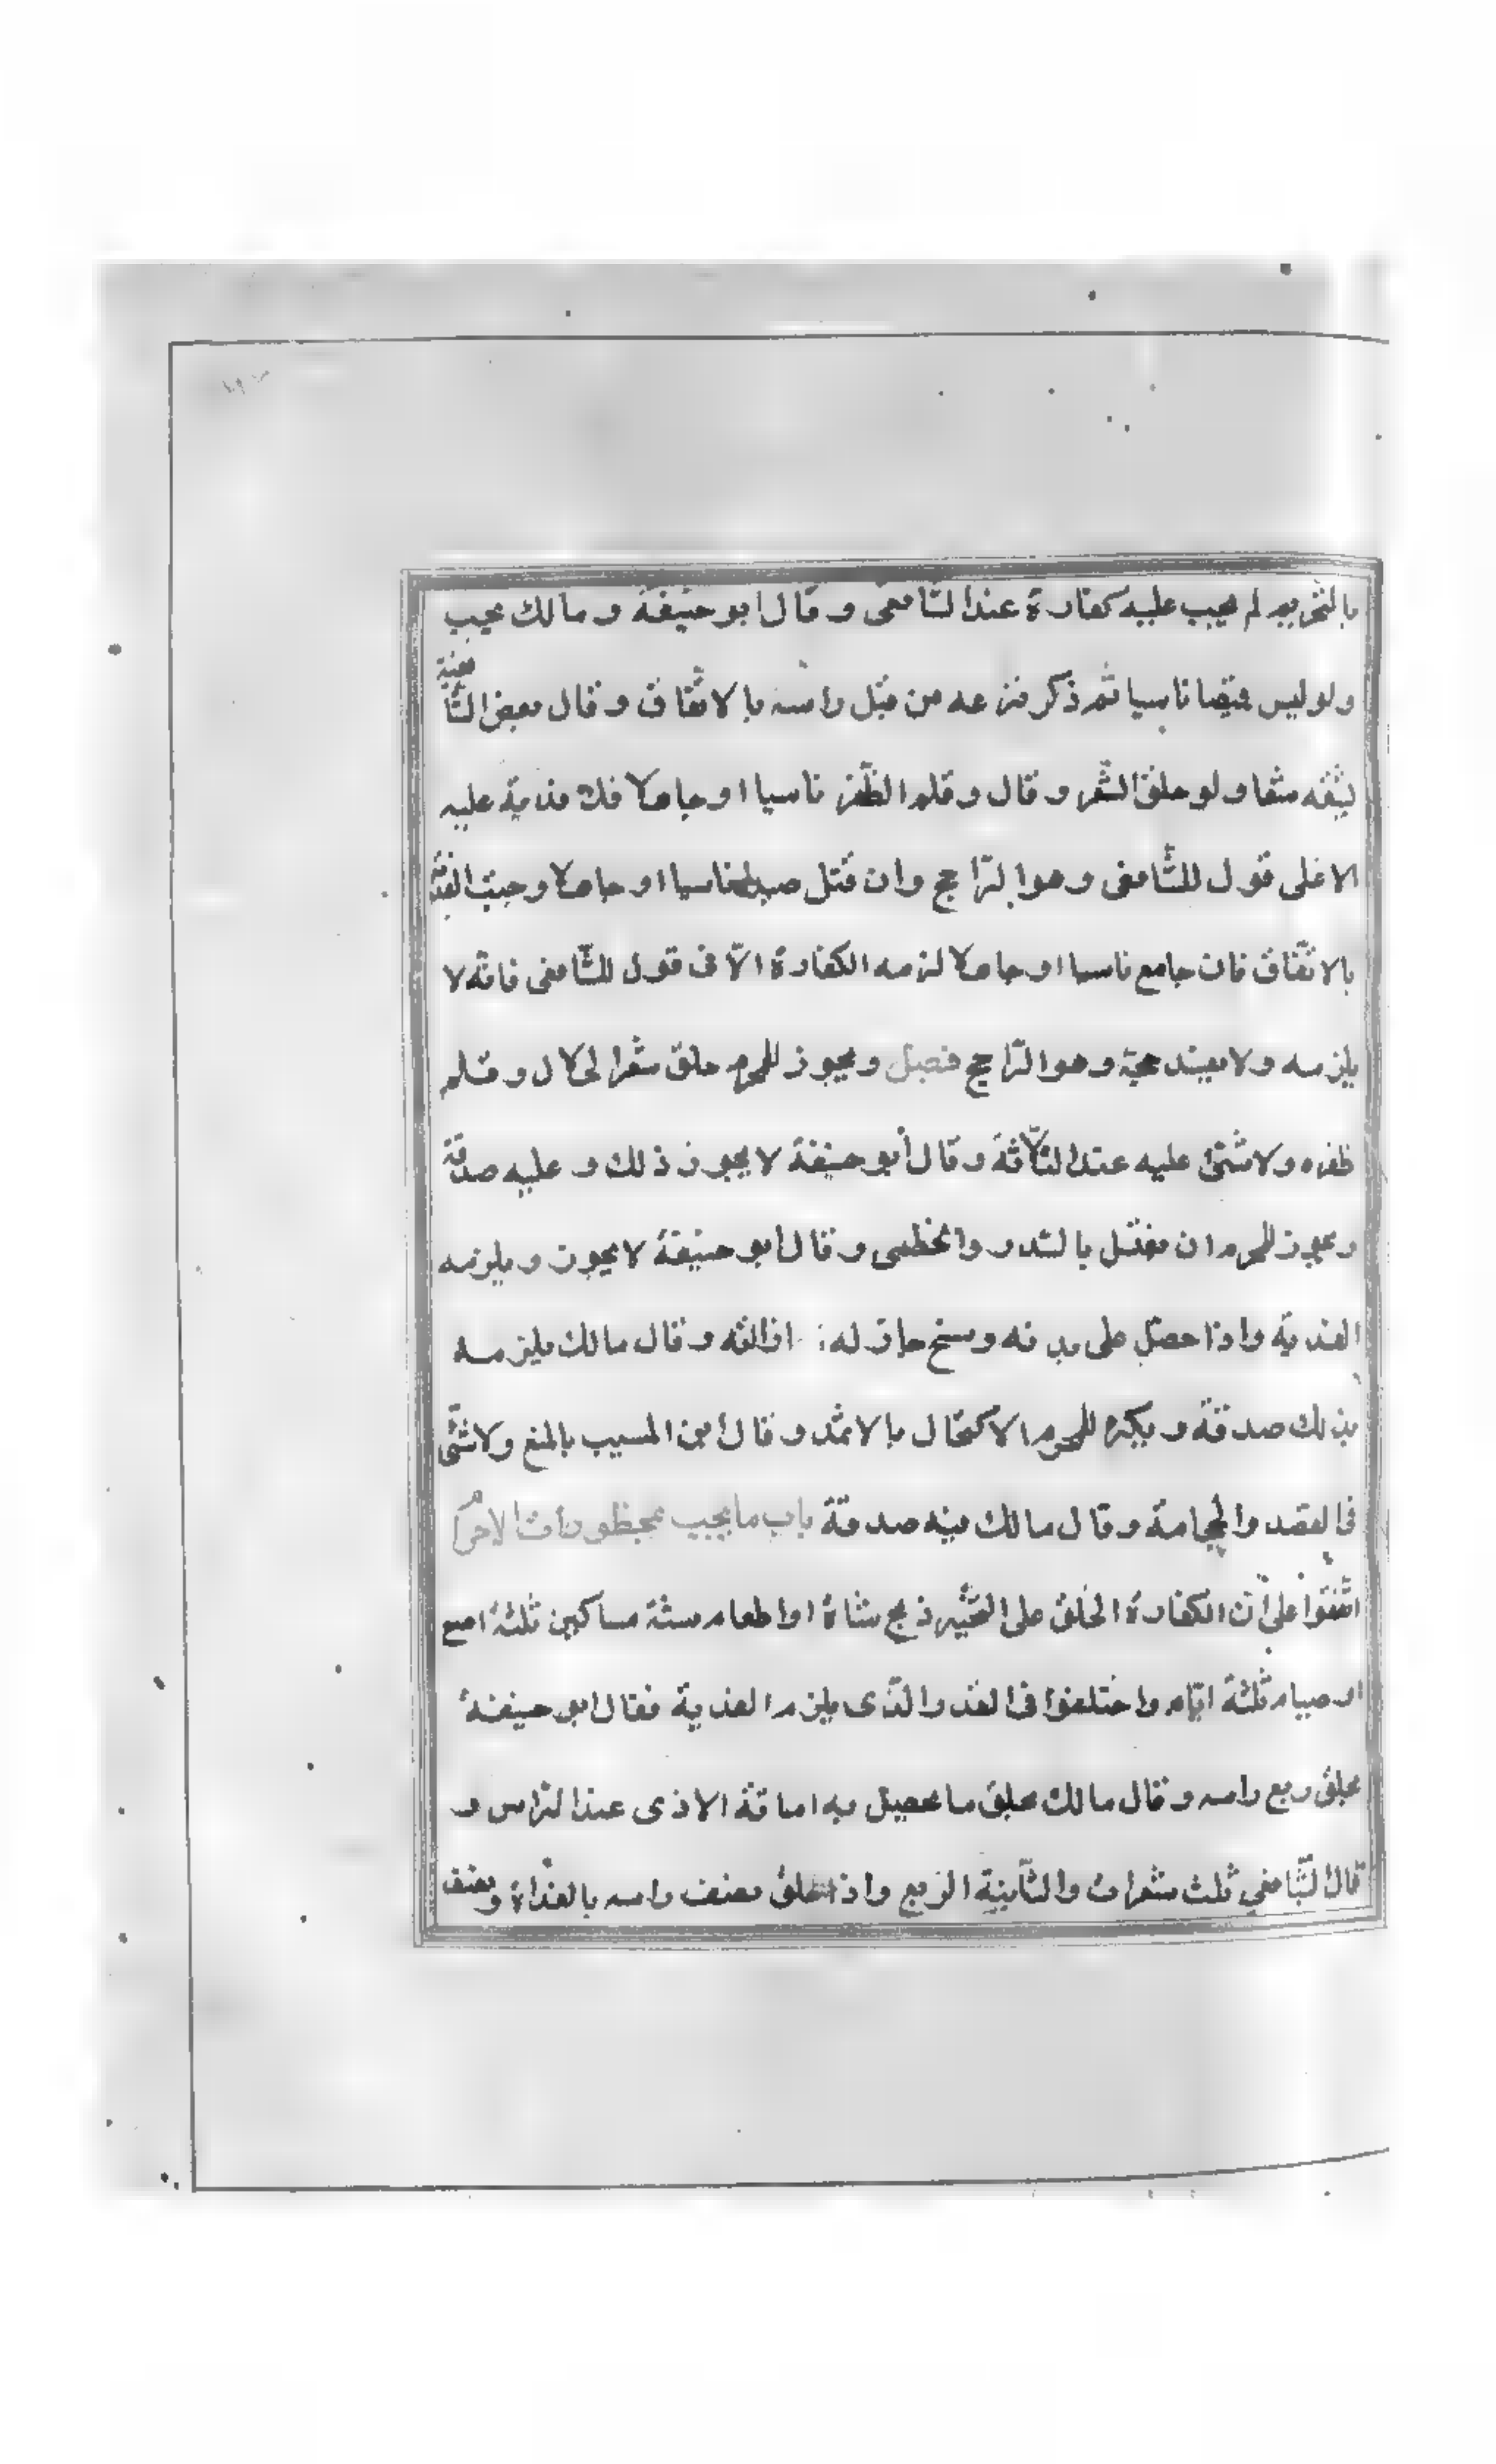 بالتحريم لم يجب عليه كفارة عند الشافعى و قال ابو حنيفة و مالك يجب
ولو لبس قميصا ناسيا ثم ذكر نزعه من قبل راسه بالاتفاق و قال بعض الشافعية
يشقه شقا ولو حلق الشعر و قال و قلم الظفر ناسيا او جاهلا فلا فدية عليه
الا على قول للشافعى وهو الراجح وان قتل صيدا ناسيا او جاهلا وجبت الفدية
بالاتفاق فان جامع ناسيا او جاهلا لزمه الكفارة الا فى قول للشافعى فانه لا
يلزمه ولا يفسد حجة وهو الراجح فصل ويجوز للمحرم حلق شعر الحلال و قلم
ظفره ولا شئ عليه عند الثلاثة و قال أبو حنيفة لا يجوز ذلك و عليه صدقة
و يجوز للمحرم ان يغتسل بالسدر والخطمى و قال أبو حنيفة لا يجوز ويلزمه
الفدية واذا حصل على بدنه وسخ جاز له ازالته و قال مالك يلزمه
بذلك صدقة و يكره للمحرم الاكتحال بالاثمد و قال أبن المسيب بالمنع ولا شئ
فى الفصد والحجامة و قال مالك فيه صدقة باب ما يجب بمحظورات الاحرام
اتفقوا على أن الكفارة الحلق على التخيير ذبح شاة او اطعام ستة مساكين ثلثة اصع
او صيام ثلثة ايام واختلفوا فى القدر الذى يلزم الفدية فقال ابو حنيفة
بحلق ربع راسه و قال مالك بحلق ما يحصل به اماقة الاذى عند الراس و
قال الشافعى ثلث شعرات والثانية الربع واذا حلق نصف راسه بالغداة ونصف